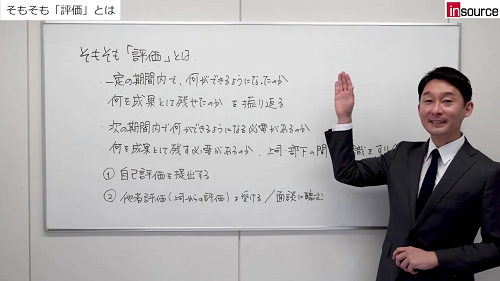 そもそも「評価」とは
insource
そもそも「評価」とは
・一定の期間内で、何ができるようになったのか
何を成果として残せたのか を振り返る
・次の期間内で何ができるようになる必要があるのか
何を成果として残す必要があるのか、上司・部下の間 識をすり
① 自己評価を提出する
② 他者評価(上司からの評価)を受ける/面談に臨む